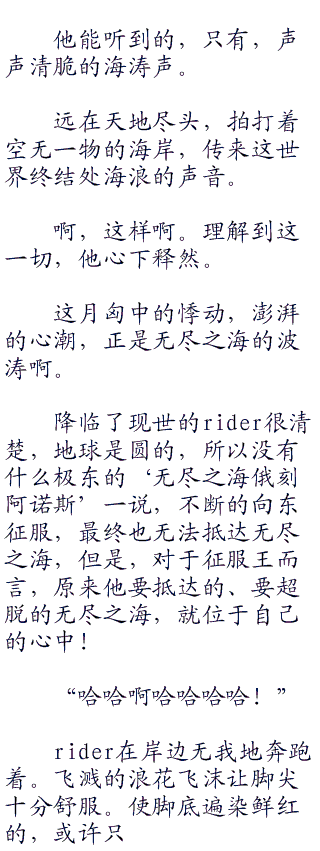 他能听到的，只有，声
声清脆的海涛声。
远在天地尽头，拍打着
空无一物的海岸，传来这世
界终结处海浪的声音。
啊，这样啊。理解到这
一切，他心下释然。
这月匈中的悸动，澎湃
的心潮，正是无尽之海的波
涛啊。
降临了现世的rider很清
楚，地球是圆的，所以没有
什么极东的‘无尽之海俄刻
阿诺斯’一说，不断的向东
征服，最终也无法抵达无尽
之海，但是，对于征服王而
言，原来他要抵达的、要超
脱的无尽之海，就位于自己
的心中！
“哈哈啊哈哈哈哈！”
rider在岸边无我地奔跑
着。飞溅的浪花飞沫让脚尖
十分舒服。使脚底遍染鲜红
的，或许只